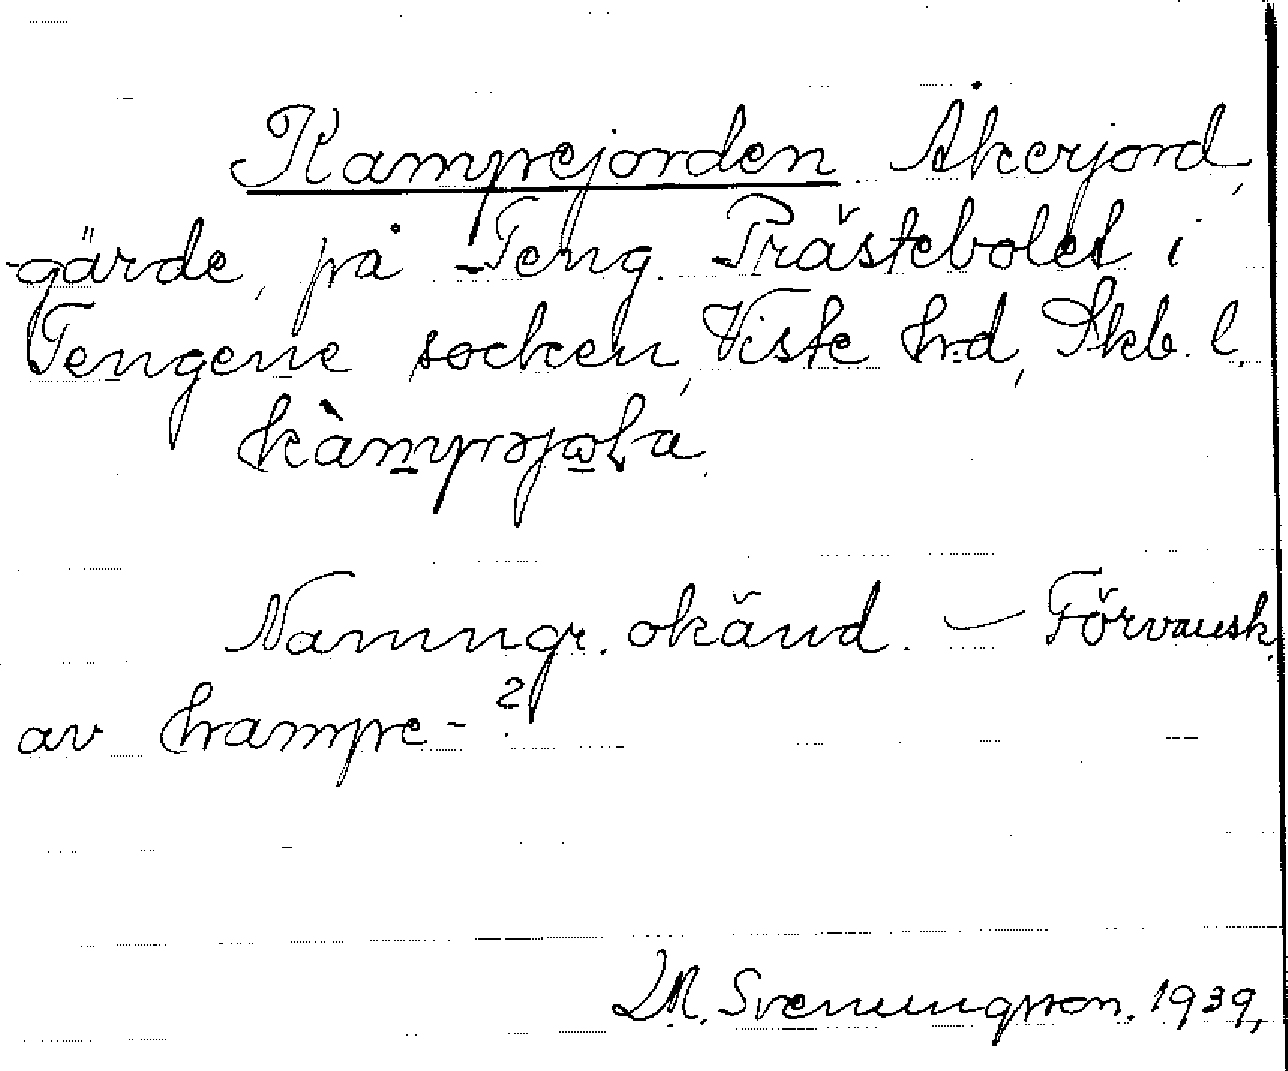 Kampejorden. Åkerjord,
gärde, på Teng. Prästebolet i
Tengene socken, Viste hrd, Skb. l.
Namngr. okänd. — Förvansk.
av krampe-?
Svenungsson. 1939,